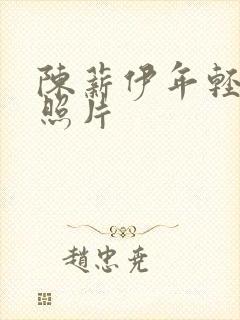 陳薪伊年轻
照片
趙忠尭